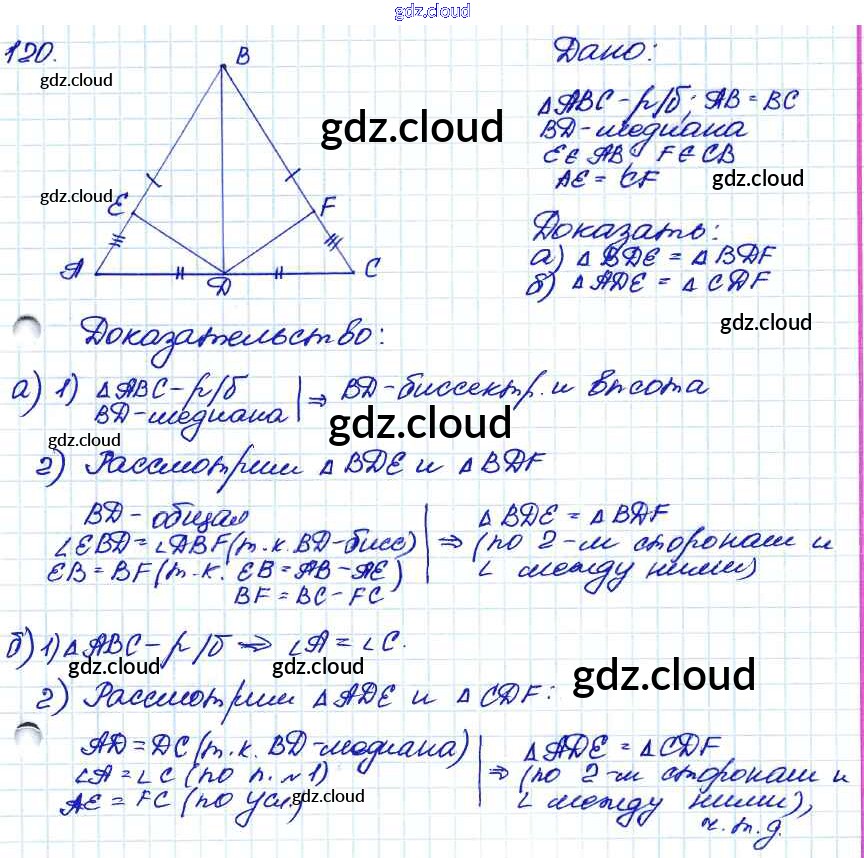 gdz.cloud
120.
gdz.cloud
B
Дано:
△ABC - р/б; AB = BC
gdz.cloud
BD - медиана
E ∈ AB, F ∈ CB
AE = CF
gdz.cloud
gdz.cloud
E
F
Доказать:
а) △BDE = △BDF
б) △ADE = △CDF
A
D
C
gdz.cloud
Доказательство:
а) 1) △ABC - р/б
BD - медиана
⇒ BD - биссектр. и высота
gdz.cloud
gdz.cloud
2) Рассмотрим △BDE и △BDF
BD - общая
∠EBD = ∠DBF (т.к. BD - бисс)
EB = BF (т.к. EB = AB - AE)
BF = BC - FC
⇒ △BDE = △BDF
(по 2-м сторонам и
∠ между ними)
gdz.cloud
б) 1) △ABC - р/б ⇒ ∠A = ∠C.
gdz.cloud
gdz.cloud
gdz.cloud
2) Рассмотрим △ADE и △CDF:
AD = DC (т.к. BD - медиана)
∠A = ∠C (по п. №1)
AE = FC (по усл)
gdz.cloud
⇒ △ADE = △CDF
(по 2-м сторонам и
∠ между ними),
ч.т.д.
gdz.cloud